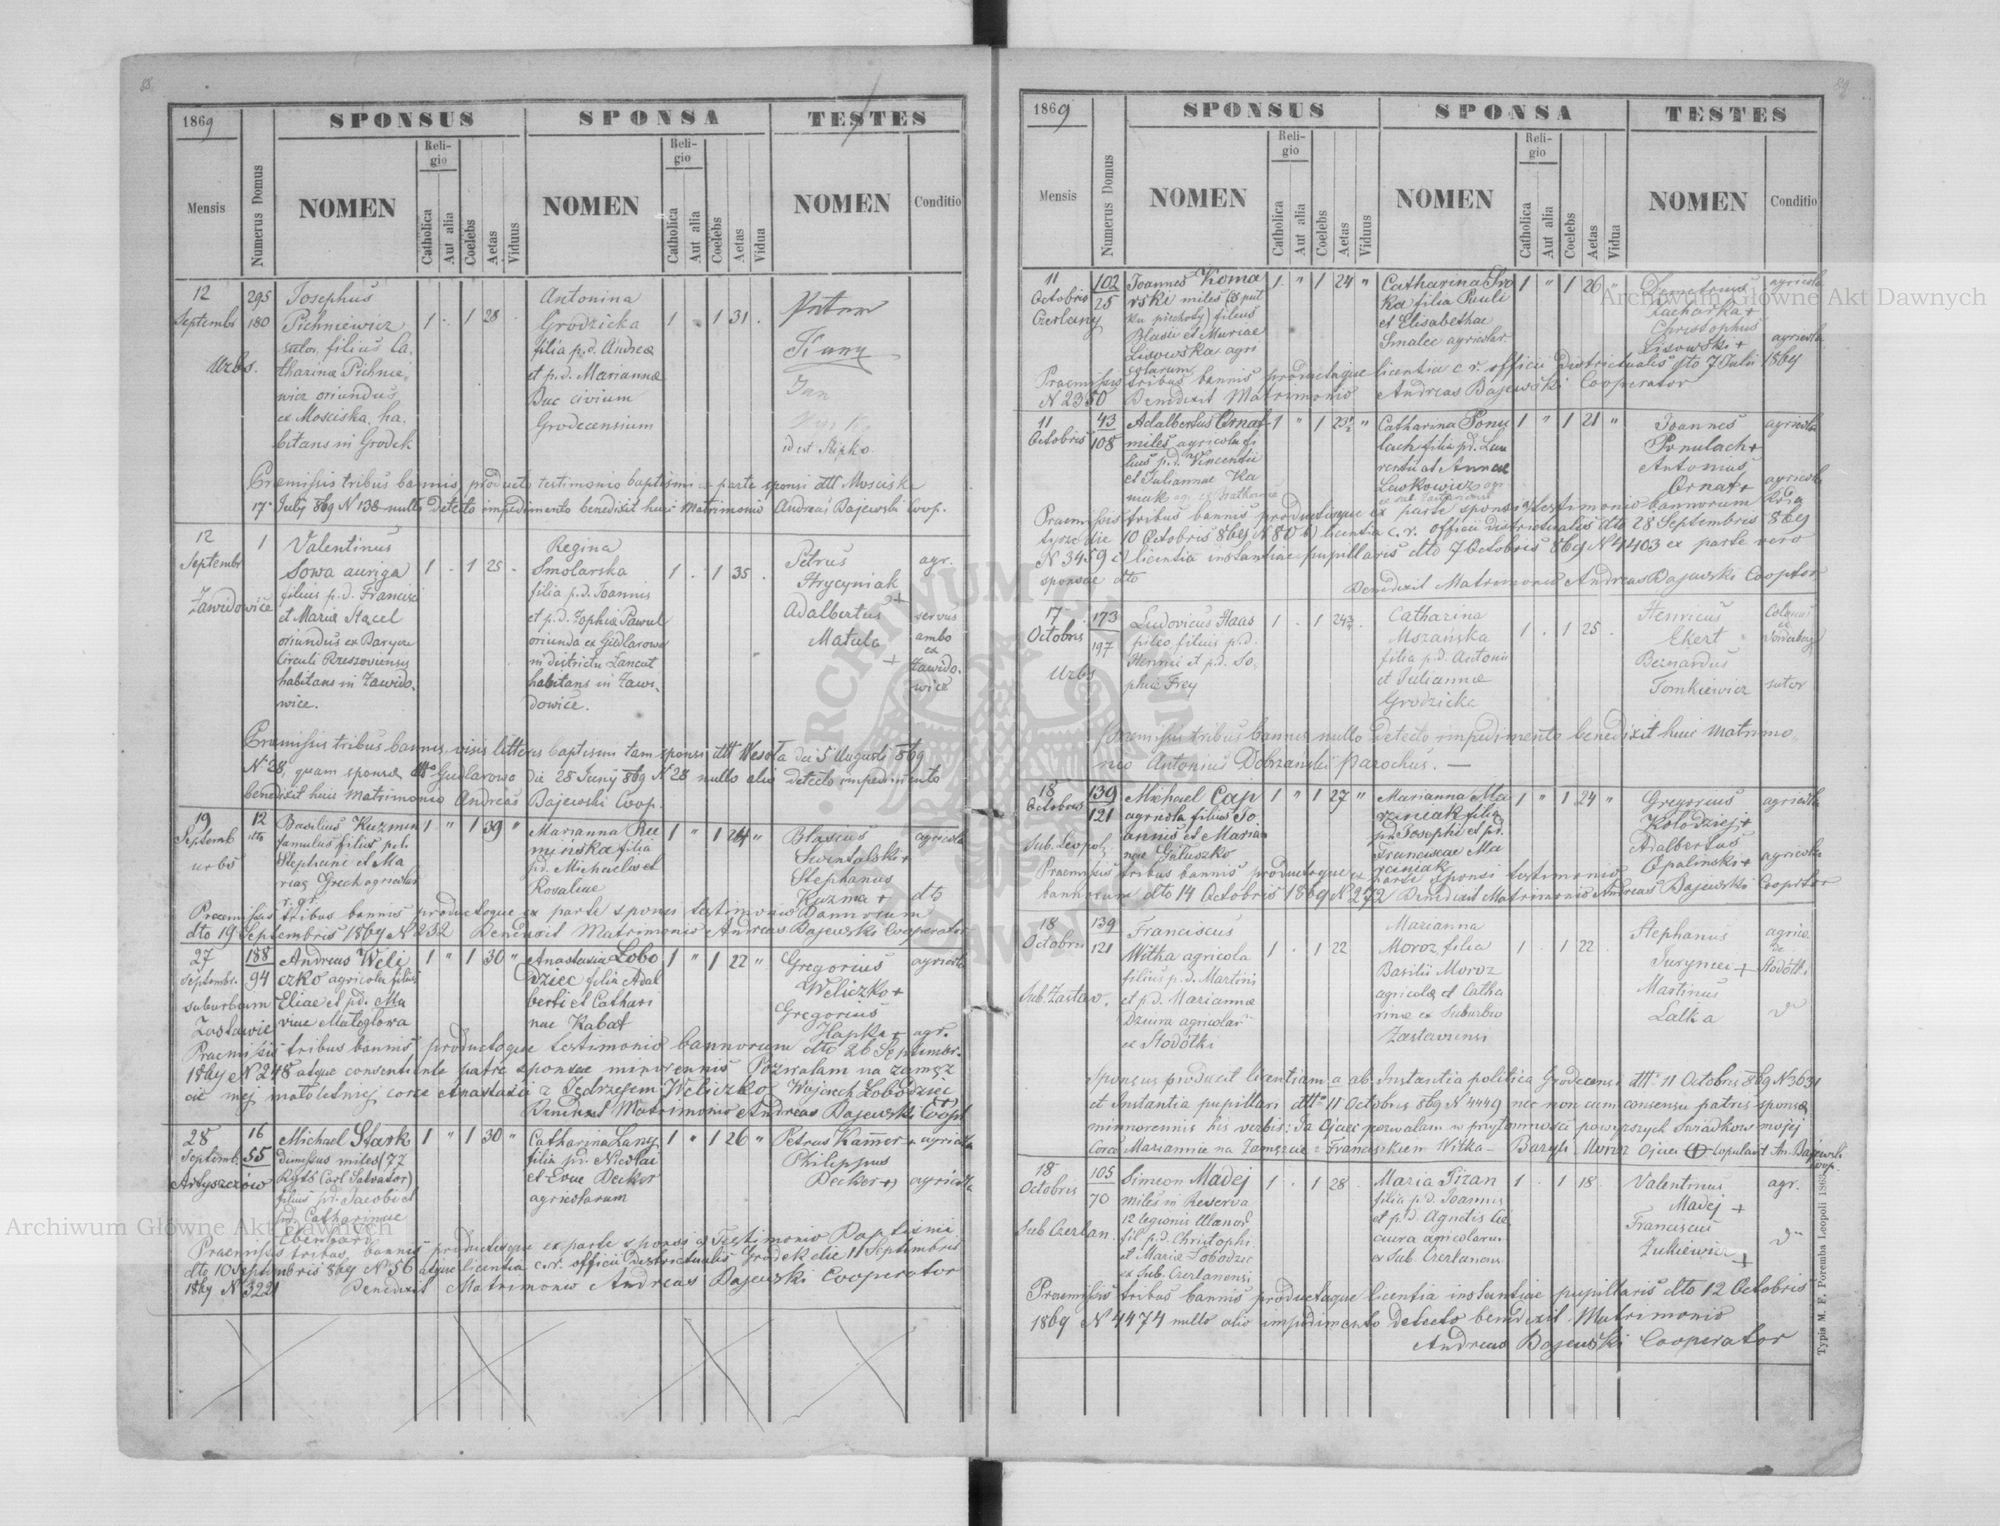 1869
SPONSUS
SPONSA
TESTES
Mensis
Numerus Domus
NOMEN
Religio
Catholica
Aut alia
Coelebs
Aetas
Viduus
NOMEN
Religio
Catholica
Aut alia
Coelebs
Aetas
Vidua
NOMEN
Conditio
12
Septembr
Urbs.
295
180
Josephus
Pichniewicz
sutor, filius Ca-
tharinæ Pichnie-
wicz oriundus
ex Mosciska, ha-
bitans in Grodek
1 . 1 28 .
Antonina
Grodzicka
filia p.d. Andreæ
et p.d. Mariannæ
Buc civium
Grodecensium
1 . 1 31 .
Jan
id est Stepko
Præmissis tribus bannis, producto testimonio baptismi ex parte sponsi dtt Mosciska
17 July 869 N 138 nullo detecto impedimento benedixit huic Matrimonio Andreas Bajewski Coop.
12
Septembr
Zawidowice
1
Valentinus
Sowa auriga
filius p.d. Francisci
et Mariæ Stacel
oriundus ex Baryez
Circuli Rzeszoviensis
habitans in Zawido-
wice.
1 . 1 25 .
Regina
Smolarska
filia p.d. Joannis
et p.d. Zophiæ Pawul
oriunda ex Gidlarowa
in districtu Lancut
habitans in Zawi-
dowice.
1 . 1 35 .
Petrus
Hrycyniak
+
Adalbertus
Matula
+
agr.
servus
ambo
ex
Zawido-
wice
Præmissis tribus bannis, visis litteris baptismi tam sponsi dtt Wesoła die 5 Augusti 869
N 28, quam sponsæ dtto Gidlarowa die 28 Juny 869 N 28 nullo alio detecto impedimento
benedixit huic Matrimonio Andreas Bajewski Coop.
19
Septemb
urbs
12
dto
Basilius Kuzmen
famulus filius p.d.
Stephani et Ma
riae Grech agricolar
r. gr.
1 " 1 39 "
Marianna Ru
mińska filia
p.d. Michaelis et
Rosaliae
1 " 1 24 "
Blasius
Swintalski +
Stephanus
Kuzma +
agricola
dto
Praemissis tribus bannis productoque ex parte sponsi testimonio Bannorum
dto 19 Septembris 1869 N 232 Benedixit Matrimonio Andreas Bajewski Cooperator
27
Septembr.
suburbium
Zastawie
188
94
Andreas Weli
czko agricola filius
Eliae et p.d. Ma
riae Małogłowa
1 " 1 30 "
Anastasia Łobo
dziec filia Adal
berti et Cathari
nae Kabat
1 " 1 22 "
Gregorius
Weliczko +
Gregorius
Hapka +
agricola
agr.
Praemissis tribus bannis productoque testimonio bannorum dto 26 Septembr.
1869 N 248 atque consentiente patre sponsae minorennis Pozwalam na zamęz
cie mej małoletniej corce Anastasia z Jędrzejem Weliczko Wojciech Łobodziec
Benedixit Matrimonio Andreas Bajewski Coopt
28
Septemb.
Artyszczów
16
55
Michael Stark
dimissus miles (77
Lgts Carl Salvator)
filius p.d. Jacobi et
p.d. Catharinae
Ebenhard
1 " 1 30 "
Catharina Lang
filia p.d. Nicolai
et Evae Decker
agricolarum
1 " 1 26 "
Petrus Kamer +
Philippus
Decker +)
agricola
agricola
Praemissis tribus bannis productoque ex parte sponsi a) Testimonio Baptismi
dto 10 Septembris 869 N 56 atque licentia c.r. officii Districtualis Grodek die 11 Septembris
1869 N 3221 Benedixit Matrimonio Andreas Bajewski Cooperator
1869
SPONSUS
SPONSA
TESTES
Mensis
Numerus Domus
NOMEN
Religio
Catholica
Aut alia
Coelebs
Aetas
Viduus
NOMEN
Religio
Catholica
Aut alia
Coelebs
Aetas
Vidua
NOMEN
Conditio
11
Octobris
Czerlany
102
25
Joannes Koma
rski miles (89 puł
ku piechoty) filius
Blasii et Mariae
Lisowska agri
colarum
1 " 1 24 "
Catharina Sro
ka filia Pauli
et Elisabethae
Smalec agricolar.
1 " 1 26 "
Demetrius
Zacharka +
Christophus
Lisowski +
agricola
agricola
Praemissis tribus bannis productaque licentia c.r. officii Districtualis dto 7 Julii 1869
N 2350 Benedixit Matrimonio Andreas Bajewski Cooperator
11
Octobris
43
108
Adalbertus Ornat
miles agricola fi
lius p.d. Vincentii
et Juliannae Ka
mak
1 " 1 23½ "
Catharina Ponu
lach filia p.d. Lau
rentii et Annae
Lewkowicz agr
1 " 1 21 "
Joannes
Ponulach +
Antonius
Ornat +
agricola
agricola
Praemissis tribus bannis productoque ex parte sponsi a) testimonio bannorum
die 10 Octobris 869 N 80 b) licentia c.r. officii districtualis dto 28 Septembris 869
N 3459 c) licentia instantiae pupillaris dto 7 Octobris 869 N 4403 ex parte vero
sponsae dto
Benedixit Matrimonio Andreas Bajewski Cooptor
17
Octobris
Urbs
173
197
Ludovicus Haas
pileo, filius p.d.
Henrici et p.d. So-
phiæ Frey
1 . 1 24¾ .
Catharina
Mszańska
filia p.d. Antonii
et Juliannæ
Grodzicka
1 . 1 25 .
Henricus
Ekert
Bernardus
Tomkiewicz
Colonus
ex
Vorderberg
sutor
Præmissis tribus bannis nullo detecto impedimento benedixit huic Matrimo-
nio Antonius Dobrzański parochus. —
18
Octobris
Sub. Leopol.
139
121
Michael Cap
agricola filius Jo
annis et Marian
nae Gałuszko
1 " 1 27 "
Marianna Ma
rciniak filia
p.d. Josephi et p.d.
Franciscae Ma
rciniak
1 " 1 24 "
Gregorius
Kołodziej +
Adalbertus
Opalinski +
agricola
agricola
Praemissis tribus bannis productoque ex parte sponsi testimonio
bannorum dto 14 Octobris 1869 N 272 Benedixit Matrimonio Andreas Bajewski Cooptor
18
Octobris
Sub. Zastav.
139
121
Franciscus
Witka agricola
filius p.d. Martini
et p.d. Mariannæ
Dziura agricolar
ex Stodółki
1 . 1 22
Marianna
Moroz, filia
Basilii Moroz
agricolæ et Catha
rinæ ex Suburbio
Zastavensi
1 . 1 22 .
Stephanus
Juryniec +
Martinus
Lalka
agric.
de
Stodółki
Sponsus produxit licentiam a ab Instantia politica Grodecensi dtto 11 Octobris 869 N 3631
et Instantia pupillari dtto 11 Octobris 869 N 4449 nec non cum consensu patris sponsæ
minnorennis his verbis: Ja Ojciec pozwalam w przytomności powyższych świadków mojej
Corce Mariannie na Zamęzcie z Franciszkiem Witka — Bazyli Moroz Ojciec + Copulavit An. Bajewski
Coop.
18
Octobris
Sub Czerlan.
105
70
Simeon Madej
miles in Reserva
12 legionis Ulanor
fil. p.d. Christophi
et Mariæ Łobodziec
ex Sub. Czerlanensi
1 . 1 28 .
Maria Pizan
filia p.d. Joannis
et p.d. Agnetis Cie
ciura agricolarum
ex Sub. Czerlanens
1 . 1 18 .
Valentinus
Madej +
Franciscus
Zukiewicz
+
agr.
Praemissis tribus bannis productaque licentia instantiae pupillaris dto 12 Octobris
1869 N 4474 nullo alio impedimento detecto benedixit Matrimonio
Andreas Bajewski Cooperator
Typis M. F. Poremba Leopoli 1863
Archiwum Główne Akt Dawnych
Archiwum Główne Akt Dawnych